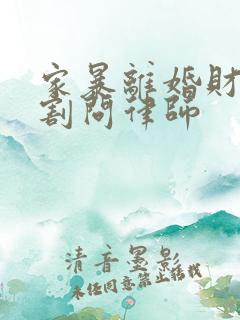 家暴離婚財
割問律師
清音墨影
未经同意禁止转载